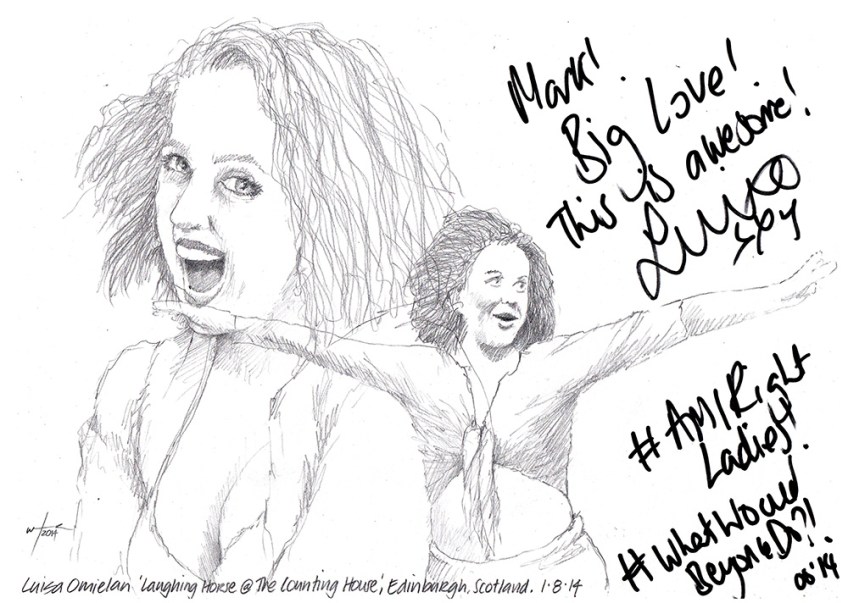 Mark!
Big Love!
This is awesome!
#AM I Right
Ladies!
#WhatWould
BeyonceDo?!
08'14
2014
Luisa Omielan 'Laughing Horse @ The Counting House', Edinburgh, Scotland. 1·8·14